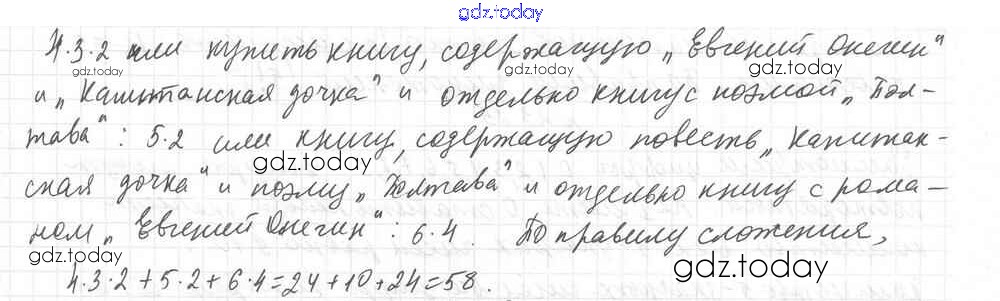 gdz.today
4·3·2 или купить книгу, содержащую „Евгений Онегин"
gdz.today gdz.today gdz.today
и „Капитанская дочка" и отдельно книгу с поэмой „Пол-
тава": 5·2 или книгу, содержащую повесть „Капитан-
gdz.today gdz.today
ская дочка" и поэму „Полтава" и отдельно книгу с рома-
ном „Евгений Онегин": 6·4. По правилу сложения,
gdz.today gdz.today
4·3·2+5·2+6·4=24+10+24=58.